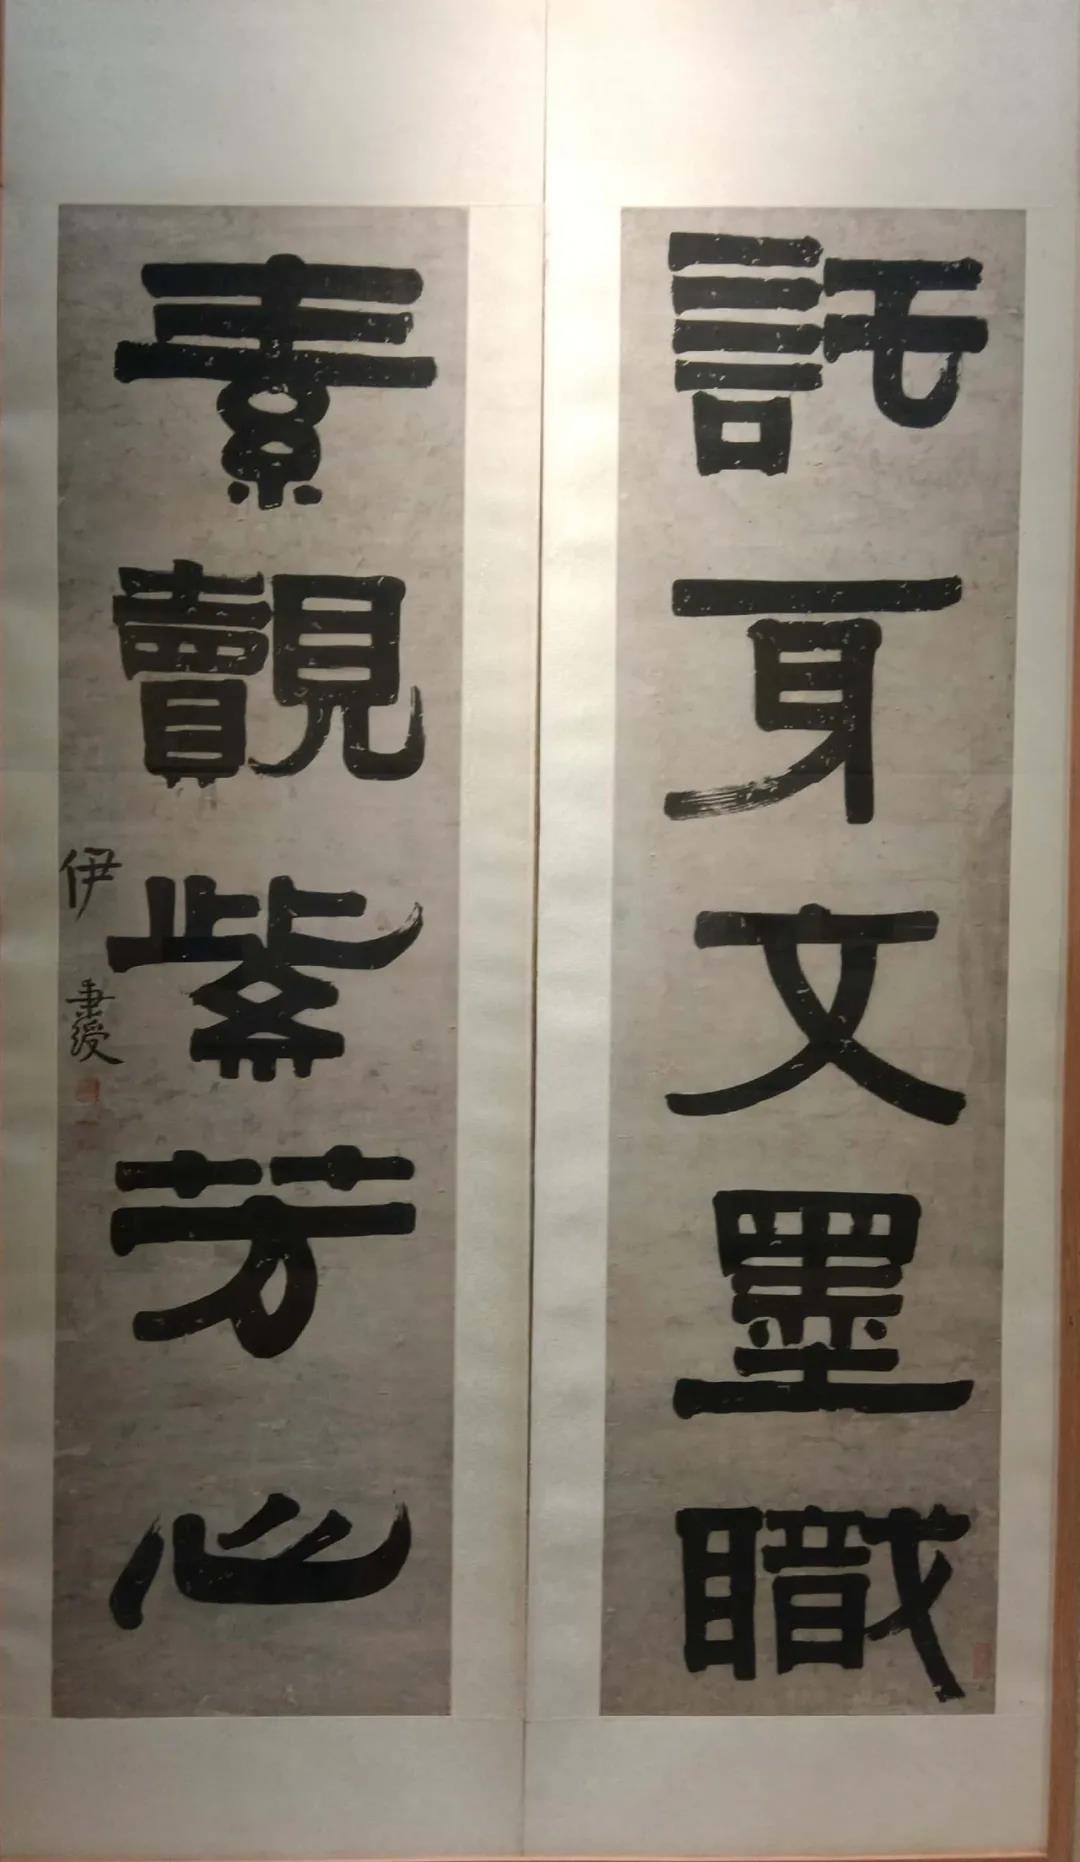 託身文墨職
素覿紫芳心
伊秉綬